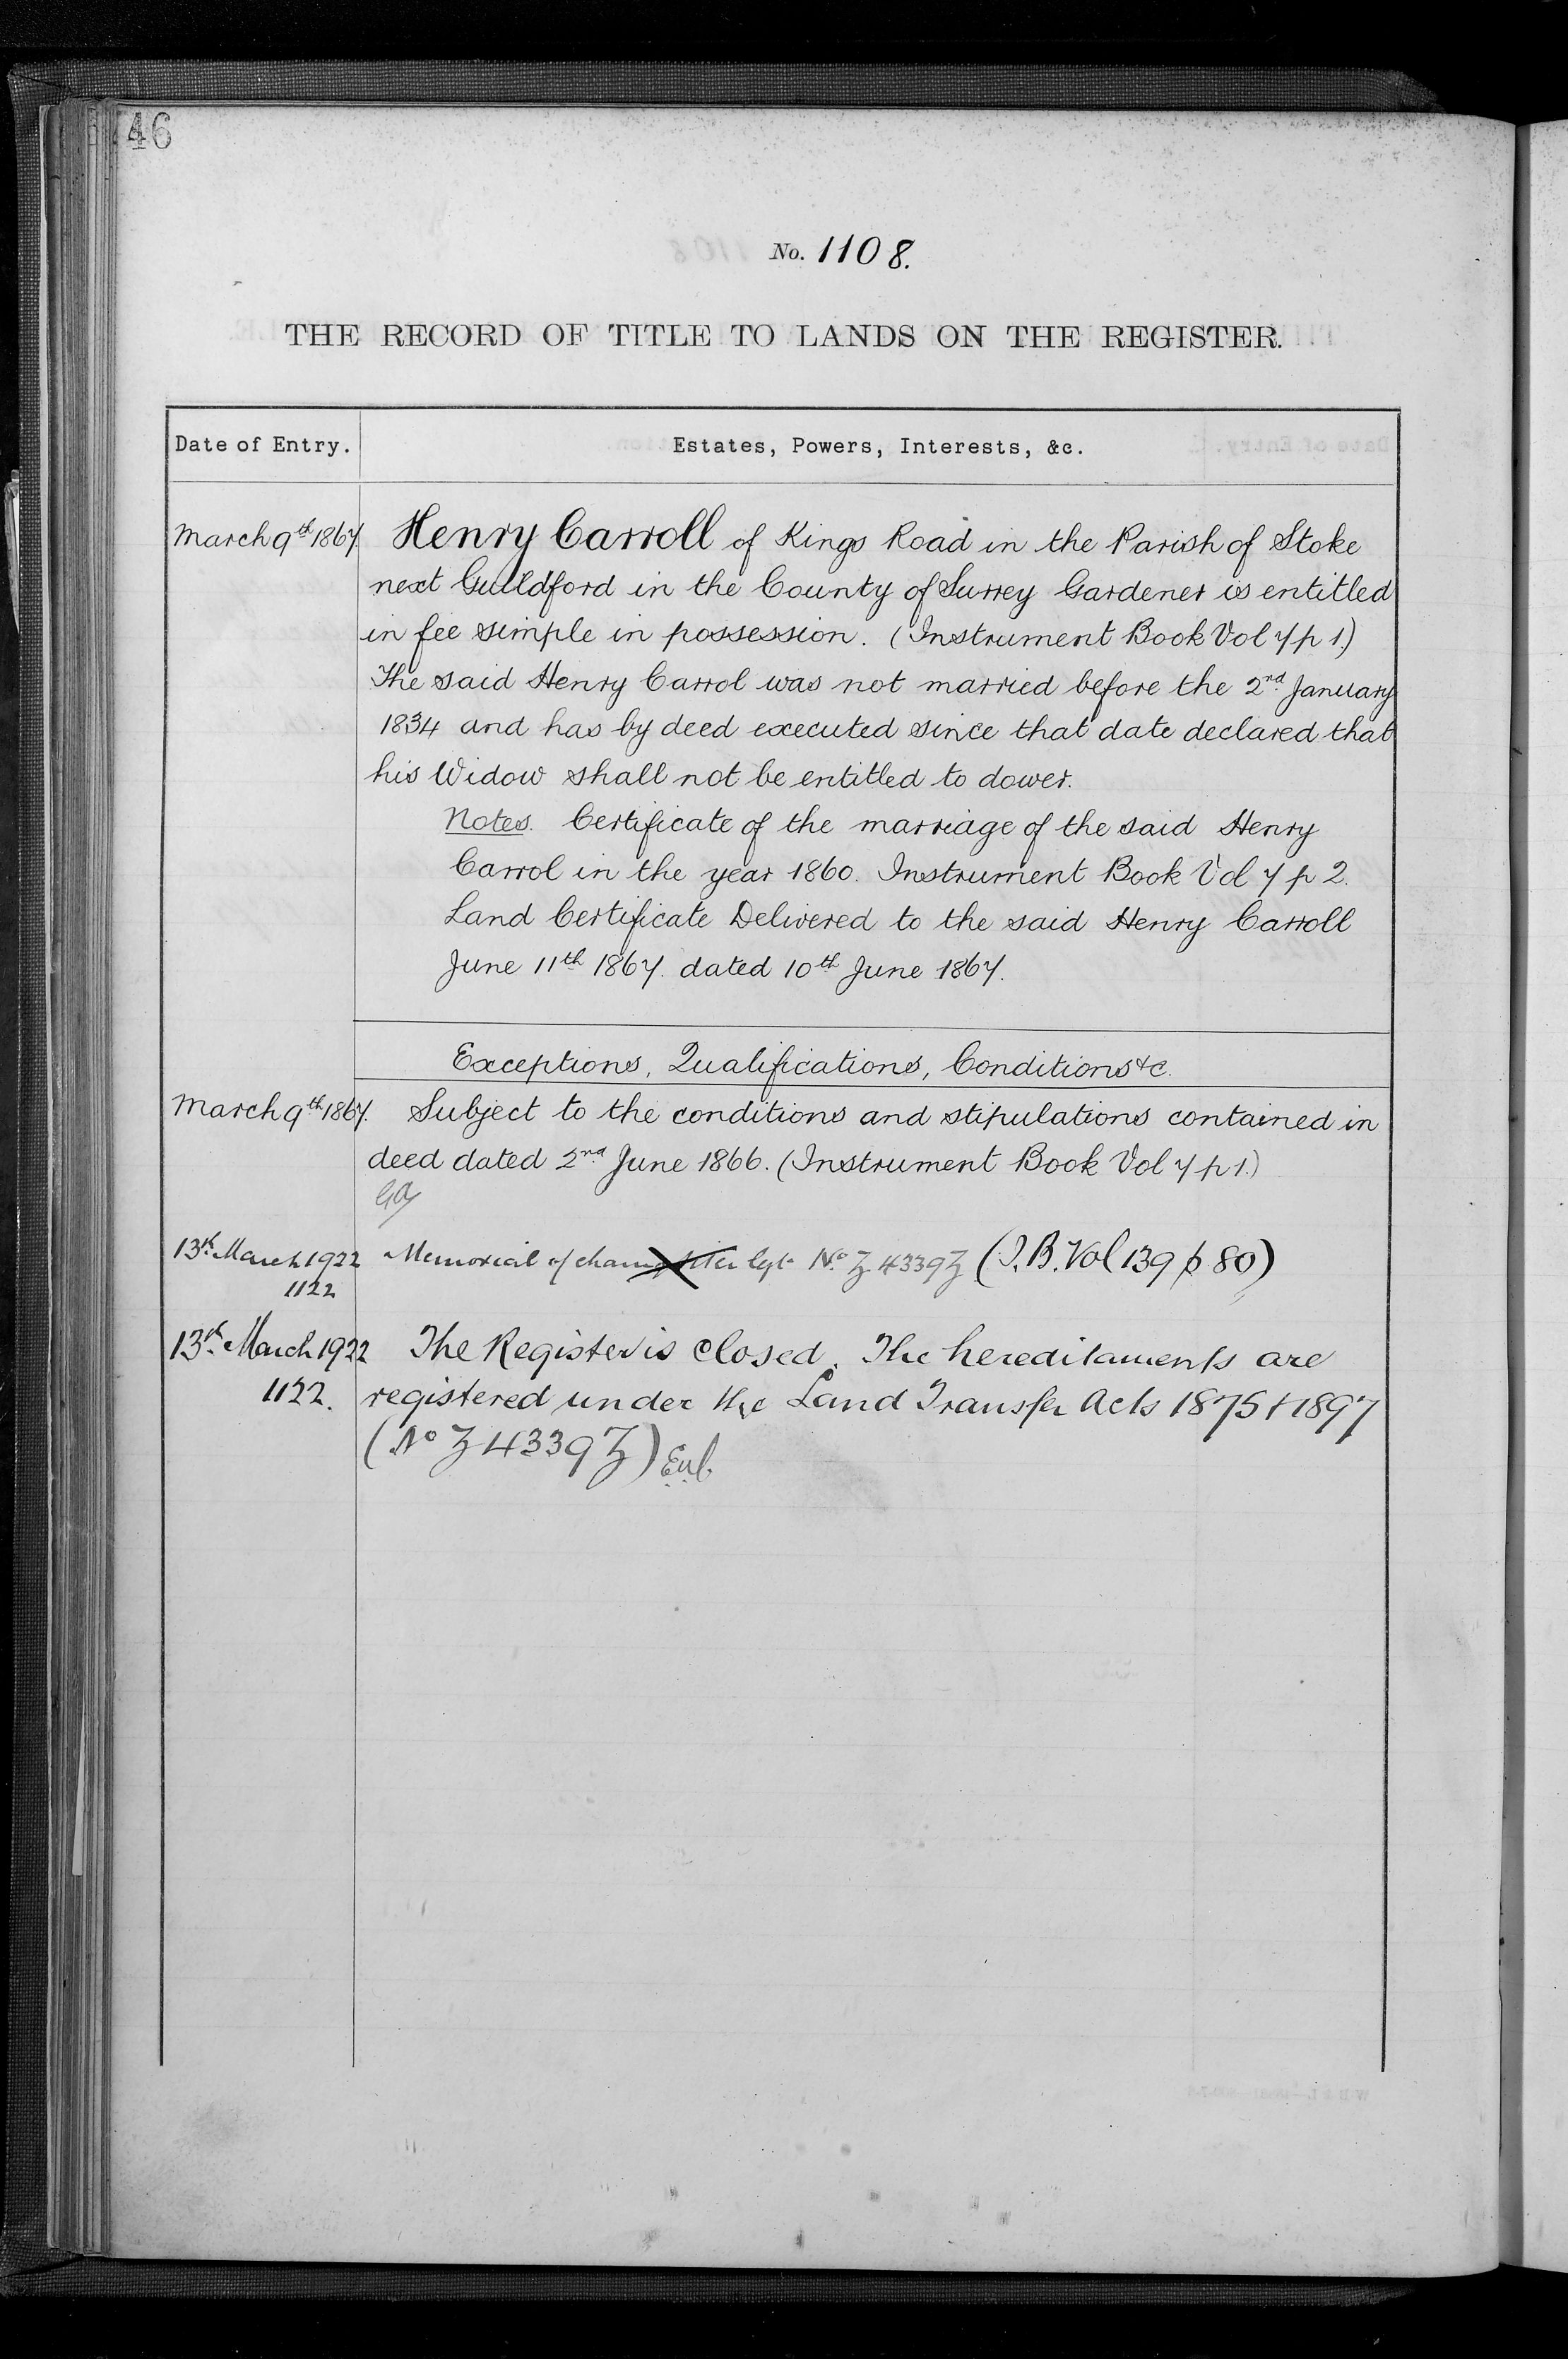 46
No. 1108.
THE RECORD OF TITLE TO LANDS ON THE REGISTER.
Date of Entry. Estates, Powers, Interests, &c.
March 9th 1867. Henry Carroll of Kings Road in the Parish of Stoke
next Guildford in the County of Surrey Gardener is entitled
in fee simple in possession. (Instrument Book Vol 7 p 1.)
The said Henry Carrol was not married before the 2nd January
1834 and has by deed executed since that date declared that
his Widow shall not be entitled to dower.
Notes. Certificate of the marriage of the said Henry
Carrol in the year 1860. Instrument Book Vol 7 p 2.
Land Certificate Delivered to the said Henry Carroll
June 11th 1867. dated 10th June 1867.
Exceptions, Qualifications, Conditions &c.
March 9th 1867. Subject to the conditions and stipulations contained in
deed dated 2nd June 1866. (Instrument Book Vol 7 p 1.)
13th March 1922 Memorial of No Z 4339 Z (I.B. Vol 139 p 80)
1122
13th March 1922 The Register is closed. The hereditaments are
1122. registered under the Land Transfer Acts 1875 & 1897
(No Z 4339 Z)